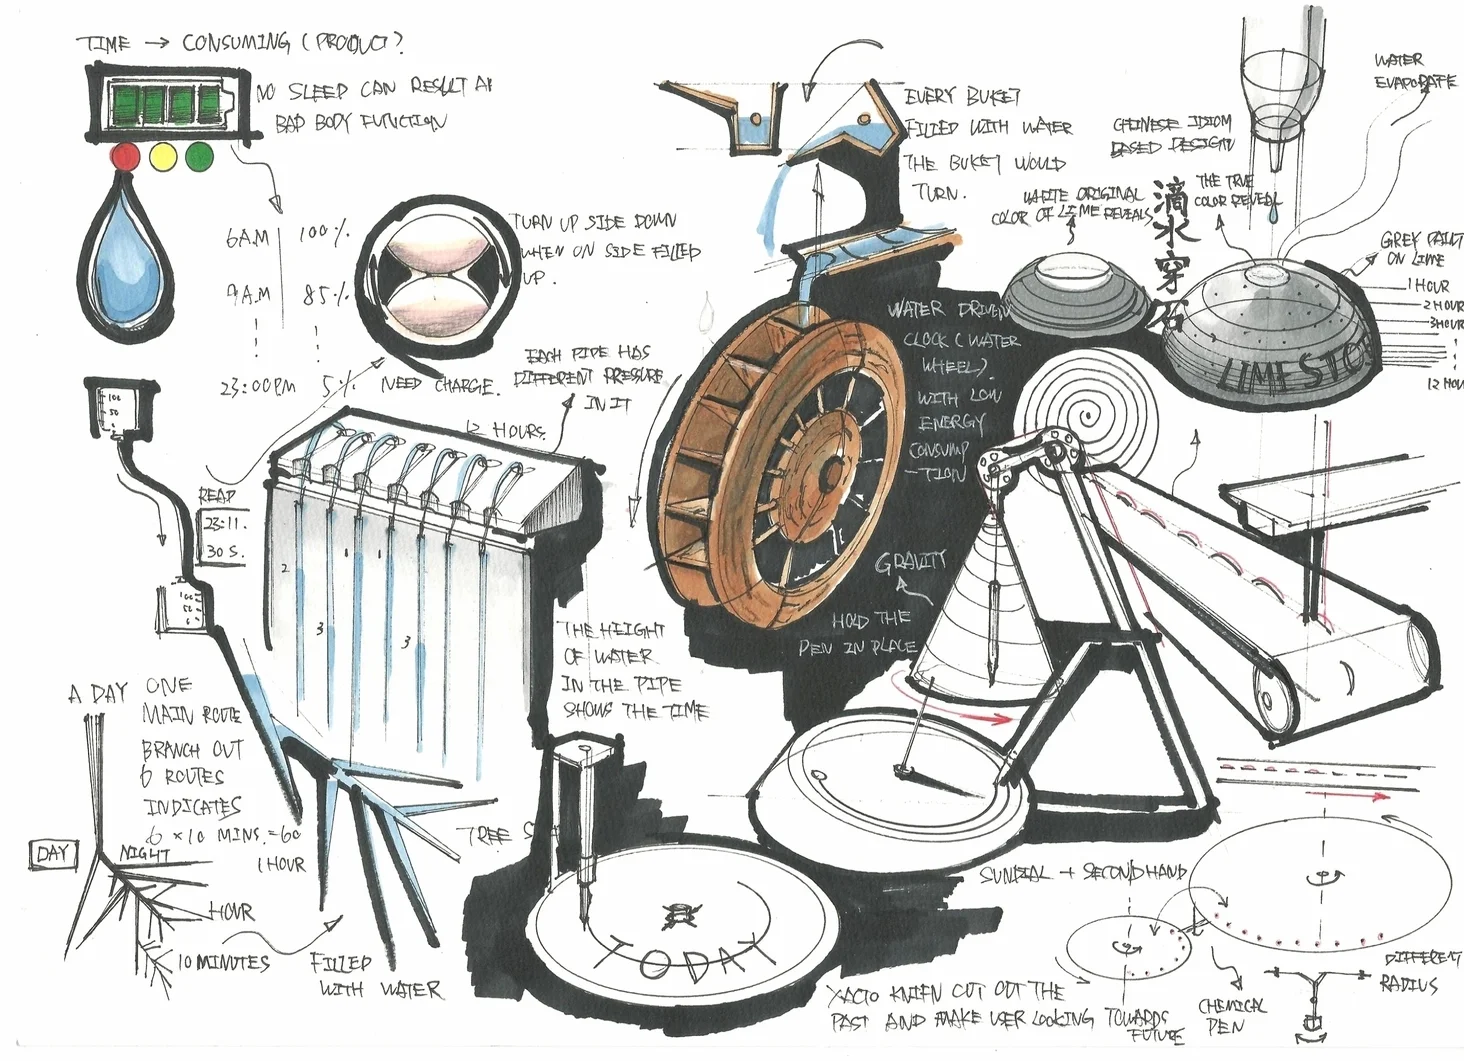 TIME → CONSUMING (PRODUCT?
NO SLEEP CAN RESULT AI
BAD BODY FUNCTION
6AM 100%
9AM 85%
23:00PM 5%
NEED CHARGE.
TURN UP SIDE DOWN
WHEN ON SIDE FILLED
UP.
EACH PIPE HAS
DIFFERENT PRESURE
IN IT
12 HOURS.
100
50
READ
23:11.
30 S.
100
50
2
3
1
1
3
THE HEIGHT
OF WATER
IN THE PIPE
SHOWS THE TIME
A DAY ONE
MAIN ROUTE
BRANCH OUT
6 ROUTES
INDICATES
6 × 10 MINS. = 60
1 HOUR
DAY
NIGHT
HOUR
10 MINUTES
FILLED
WITH WATER
TREE
EVERY BUKET
FILLED WITH WATER
THE BUKET WOULD
TURN.
WATER DRIVEN
CLOCK (WATER
WHEEL)
WITH LOW
ENERGY
CONSUMP
-TION
CHINESE IDIOM
BASED DESIGN
滴水穿石
WHITE ORIGINAL
COLOR OF LIME REVEALS
THE TRUE
COLOR REVEAL
WATER
EVAPORATE
GREY PAINT
ON LIME
1 HOUR
2 HOUR
3HOUR
12 HOU
LIMESTO
GRAVITY
HOLD THE
PEN IN PLACE
SUNDIAL + SECONDHAND
TODAY
XACTO KNIFN CUT OUT THE
PAST AND MAKE USER LOOKING TOWARDS
FUTURE
CHEMICAL
PEN
DIFFERENT
RADIUS